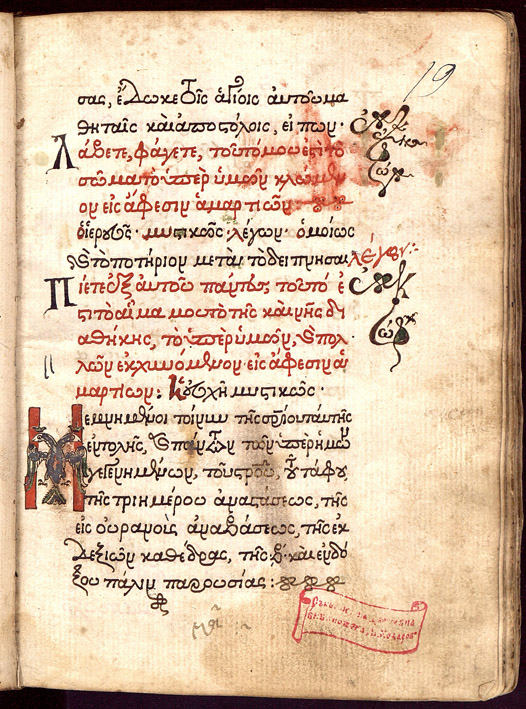 19
σας, ἔδωκε τοῖς ἁγίοις αὐτοῦ μα
θηταῖς καὶ ἀποστόλοις, εἰπών·
Λάβετε, φάγετε, τοῦτό μου ἐστὶ τὸ
σῶμα τὸ ὑπὲρ ὑμῶν κλώμεν
ον εἰς ἄφεσιν ἁμαρτιῶν:
ὁ ἱερεὺς· μυστικῶς λέγων· ὁμοίως
καὶ τὸ ποτήριον μετὰ τὸ δειπνῆσαι λέγων:
Πίετε ἐξ αὐτοῦ πάντες τοῦτό ἐ
στὶ τὸ αἷμα μου τὸ τῆς καινῆς δι
αθήκης, τὸ ὑπὲρ ὑμῶν, καὶ πολ
λῶν ἐκχυνόμενον· εἰς ἄφεσιν ἁ
μαρτιῶν: εὐχὴ μυστικῶς·
Μεμνημένοι τοίνυν τῆς σωτηρίου ταύτης
ἐντολῆς, καὶ πάντων τῶν ὑπὲρ ἡμῶν
γεγενημένων, τοῦ σταυροῦ, τοῦ τάφου,
τῆς τριημέρου ἀναστάσεως, τῆς
εἰς οὐρανοὺς ἀναβάσεως, τῆς ἐκ
δεξιῶν καθέδρας, τῆς β΄ καὶ ἐνδό
ξου πάλιν παρουσίας: